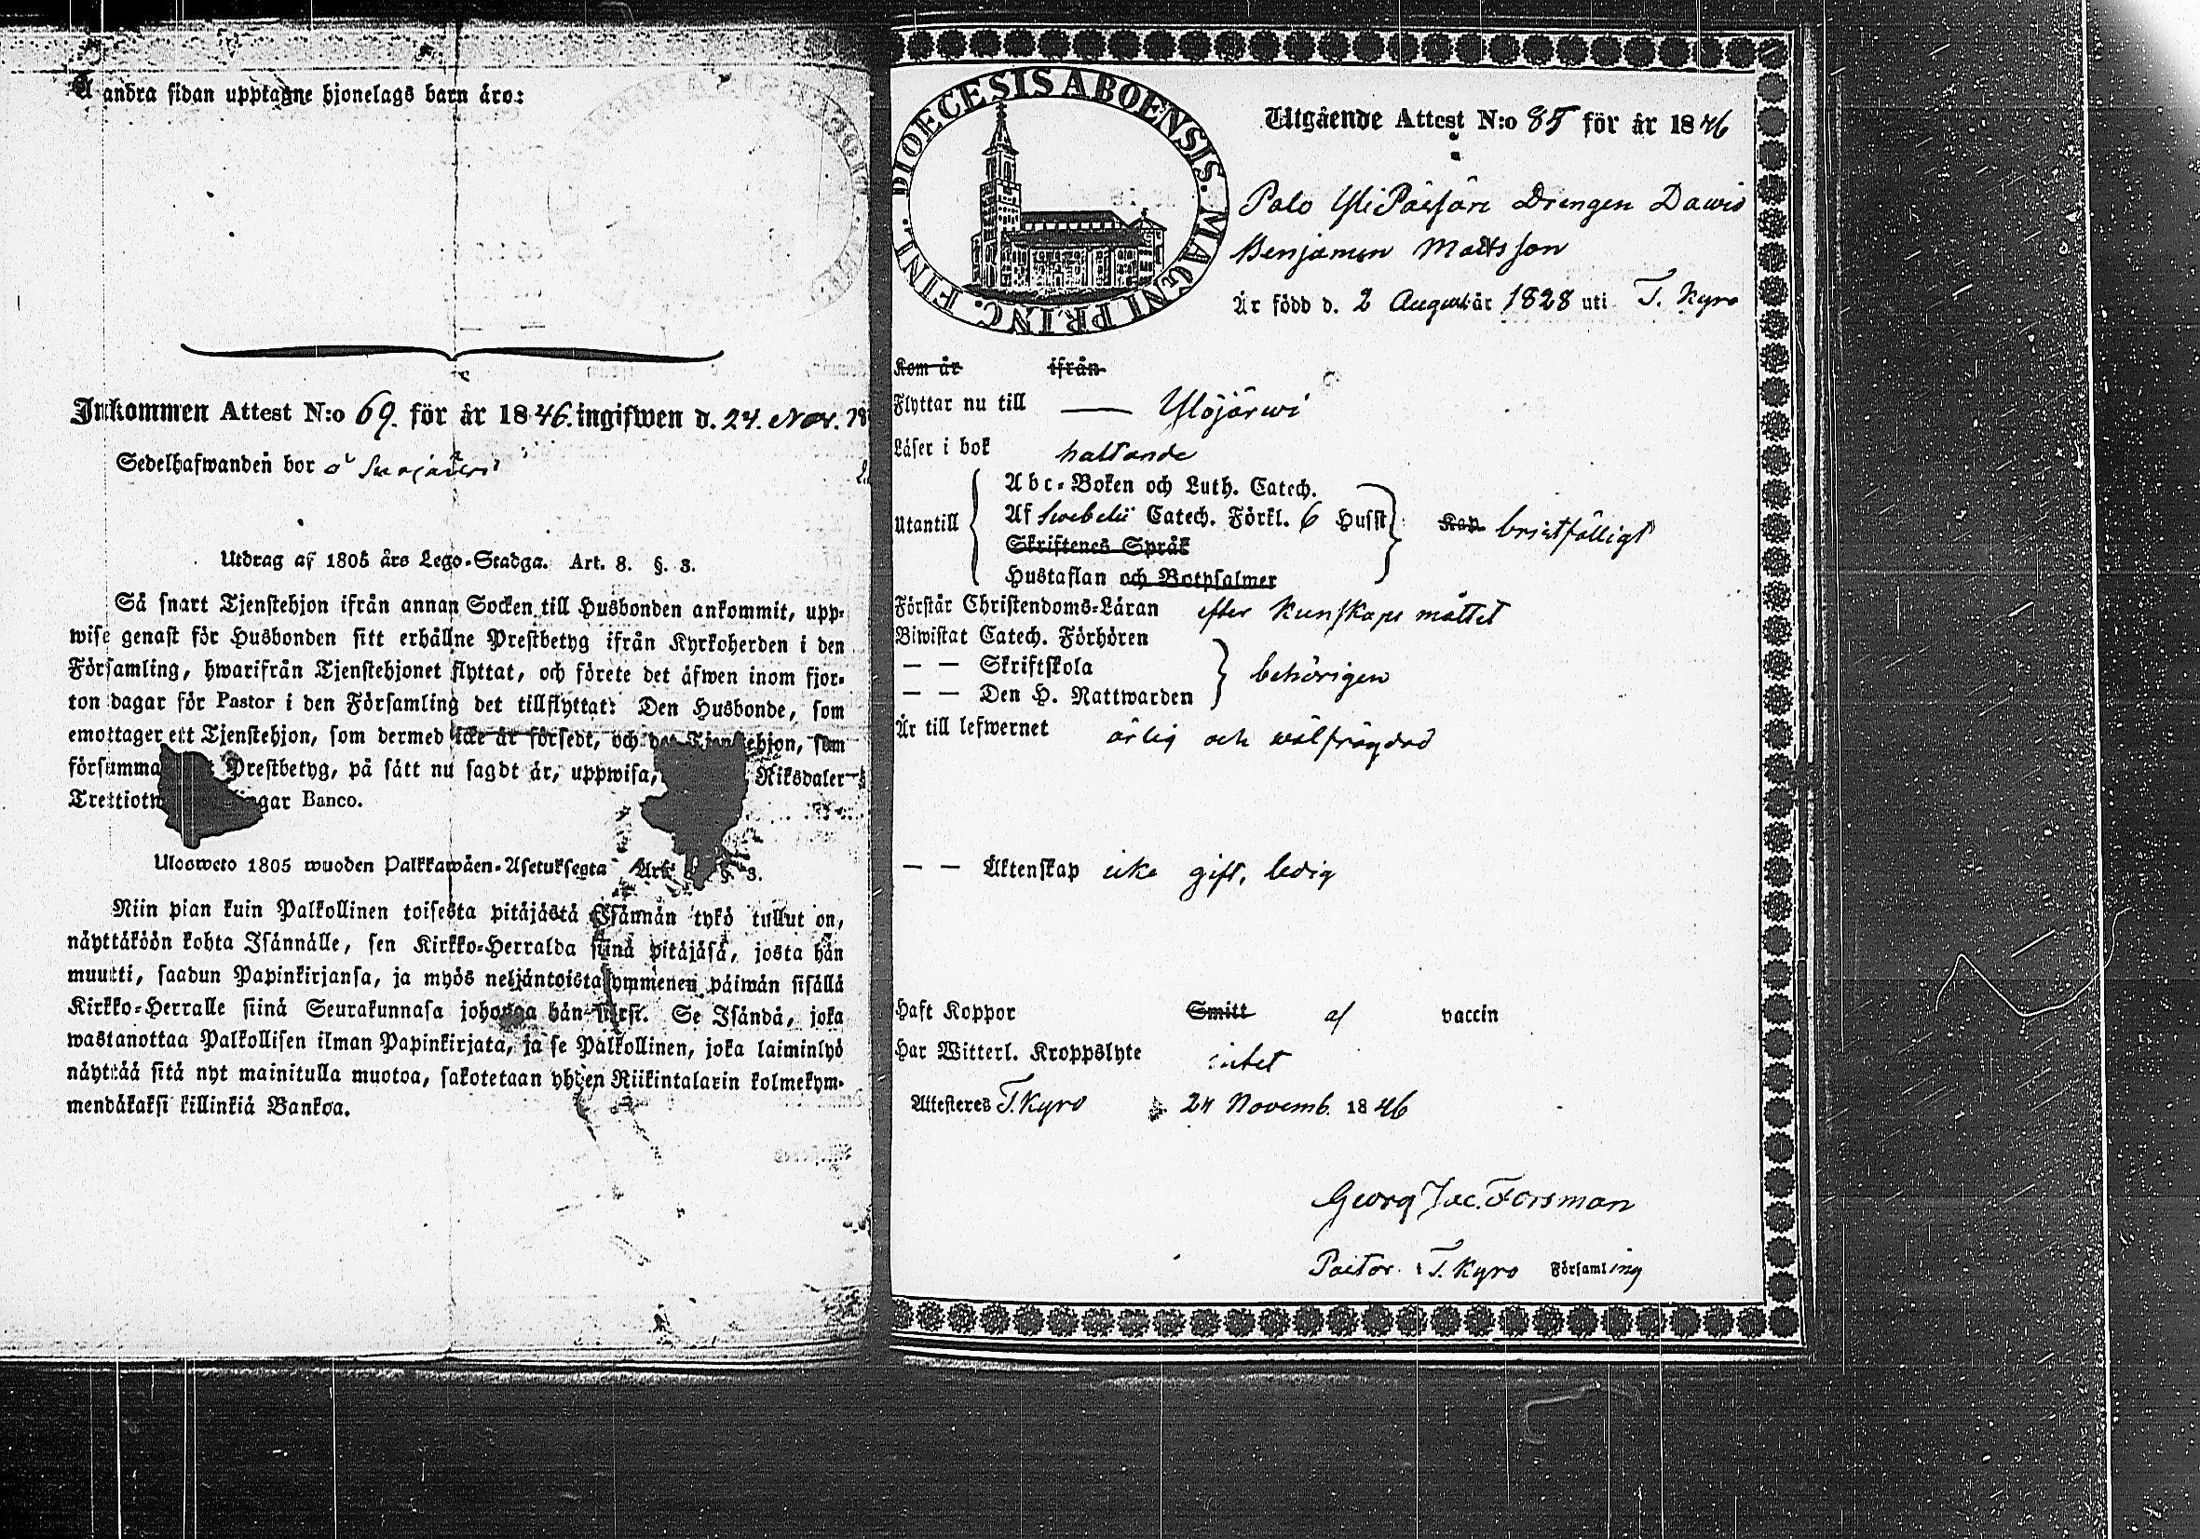 Å andra sidan upptagne hjonelags barn äro:
Inkommen Attest N:o 69. för år 1846. ingifwen d. 24. Nov.
Sedelhafwanden bor å
Utdrag af 1805 års Lego-Stadga. Art. 8. §. 3.
Så snart Tjenstehjon ifrån annan Socken till Husbonden ankommit, upp-
wise genast för Husbonden sitt erhållne Prestbetyg ifrån Kyrkoherden i den
Församling, hwarifrån Tjenstehjonet flyttat, och förete det äfwen inom fjor-
ton dagar för Pastor i den Församling det tillflyttat: Den Husbonde, som
emottager ett Tjenstehjon, som dermed icke är försedt, och det Tjenstehjon, som
försumma Prestbetyg, på sätt nu sagdt är, uppwisa, Riksdaler
Banco.
Ulosweto 1805 wuoden Palkkawäen-Asetuksesta Art. §. 3.
Niin pian kuin Palkollinen toisesta pitäjästä Isännän tykö tullut on,
näyttäköön kohta Isännälle, sen Kirkko-Herralda siinä pitäjäsä, josta hän
muutti, saadun Papinkirjansa, ja myös neljäntoistakymmenen päiwän sisällä
Kirkko-Herralle siinä Seurakunnasa johonga hän siirst. Se Isändä, joka
wastanottaa Palkollisen ilman Papinkirjata, ja se Palkollinen, joka laiminlyö
näyttää sitä nyt mainitulla muotoa, sakotetaan yhden Riikintalarin kolmekym-
mendäkaksi killinkiä Bankoa.
DIOECESIS ABOENSIS. MAGNI PRINC. FINL.
Utgående Attest N:o 85 för år 1846
Palo Yli Päifäri Drengen Dawid
Benjamin Mattsson
Är född d. 2 August. år 1828 uti T. Kyro
Kom år ifrån
Flyttar nu till — Ylöjärwi
Läser i bok haltande
Utantill
Abc-Boken och Luth. Catech.
Af Swebelii Catech. Förkl. 6 Husst.
Skriftenes Språk
Hustaflan och Botpsalmer
Kan bristfälligt
Förstår Christendoms-Läran efter kunskaps måttet
Biwistat Catech. Förhören
— — Skriftskola
— — Den H. Nattwarden
behörigen
Är till lefwernet ärlig och wälfrägdad
— — Äktenskap icke gift, ledig
Haft Koppor Smitt af vaccin
Har Witterl. Kroppslyte intet
Attesteres T. Kyro 24 Novemb. 1846
Georg Jac. Forsman
Pastor i T. Kyro Församling